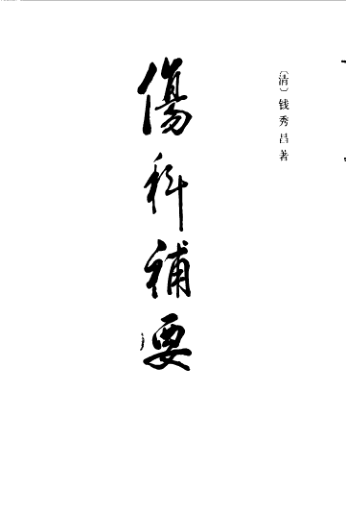 〔清〕钱秀昌著
傷科補要